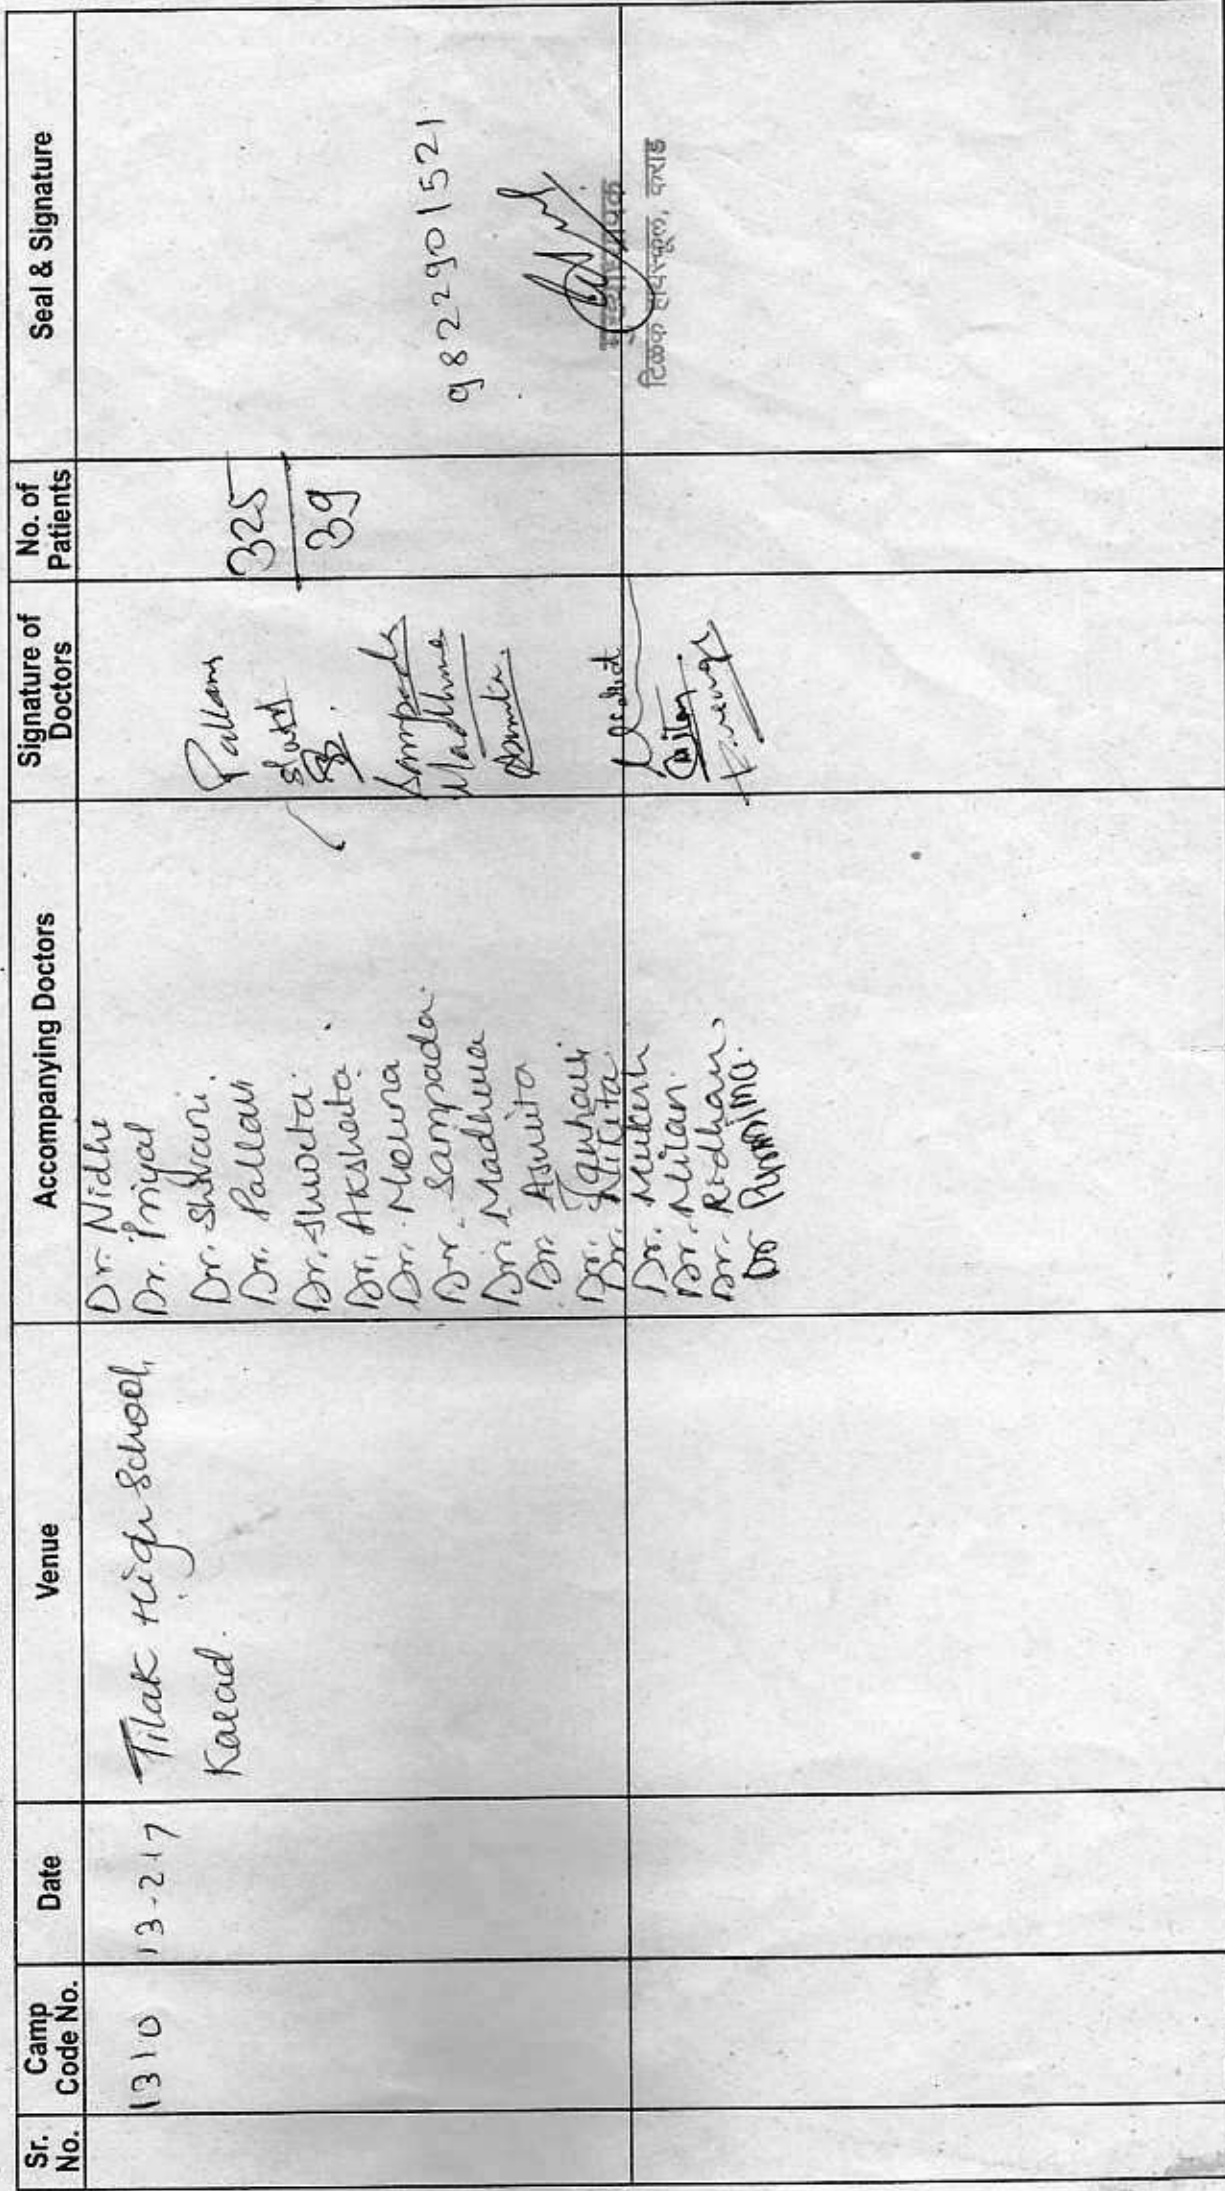 Sr. No.
Camp Code No.
Date
Venue
Accompanying Doctors
Signature of Doctors
No. of Patients
Seal & Signature
1310
13-2-17
Tilak High School,
Karad.
Dr. Nidhi
Dr. Priyal
Dr. Shivani.
Dr. Pallavi
Dr. Shweta.
Dr. Akshata.
Dr. Mouna
Dr. Sampada.
Dr. Madhura
Dr. Asmita
Dr. Janhavi
Dr. Nikita
Dr. Mukesh
Dr. Milan.
Dr. Rodhan
Dr Purnima.
Pallavi
Sampada
Madhura
Asmita.
325
39
9822901521
मुख्याध्यापक
टिळक हायस्कूल, कराड